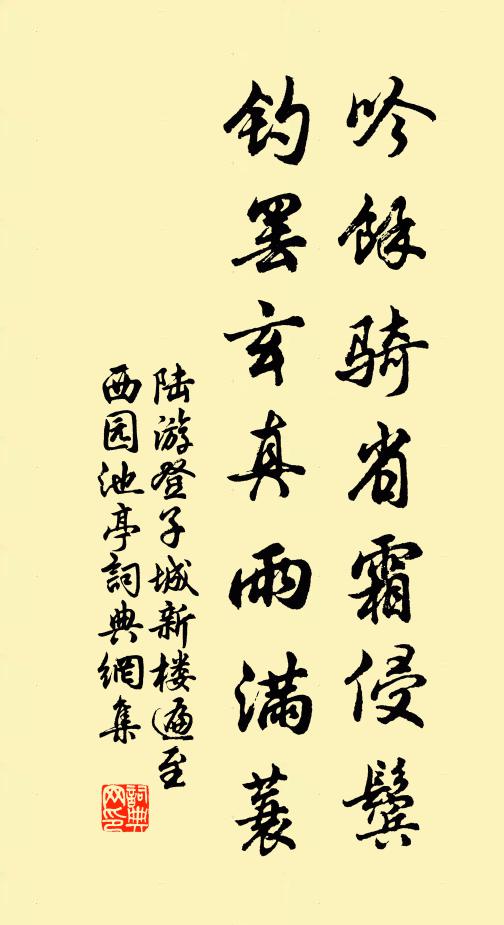 吟餘騎省霜侵鬢
钓罢玄真雨满蓑
陆游登子城新楼遍至
西园池亭詞典網集
詞典
网印